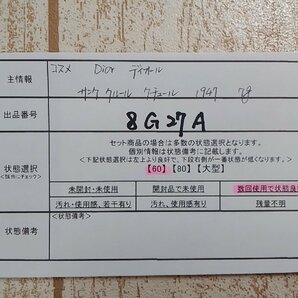 主情報
コスメ Dior ディオール
サンク クルール クチュール 1947 28
出品番号
8G27A
セット商品の場合は多数の状態となります。
個別情報は状態備考に記載します。
<下記状態選択は左上より良好で、下段右側が一番状態が低くなります。>
状態選択
<該当にチェック>
【60】【80】【大型】
未開封・未使用 開封品で未使用 数回使用で状態良
汚れ・使用感、若干有り 汚れ、使用感有り 残量不明
状態備考
<状態備考>